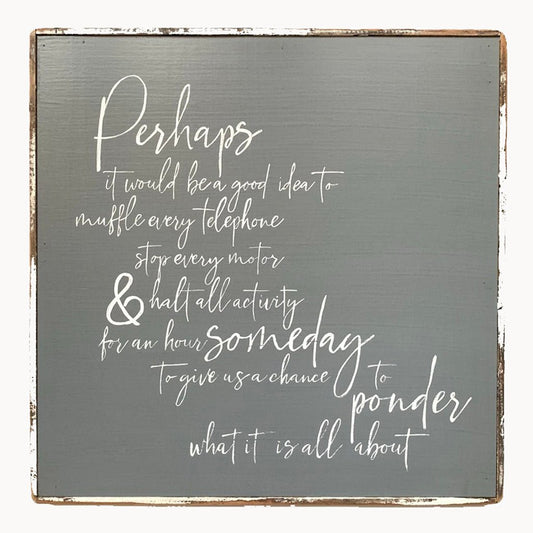 Perhaps
it would be a good idea to
muffle every telephone
stop every motor
& halt all activity
for an hour someday
to give us a chance to
ponder
what it is all about